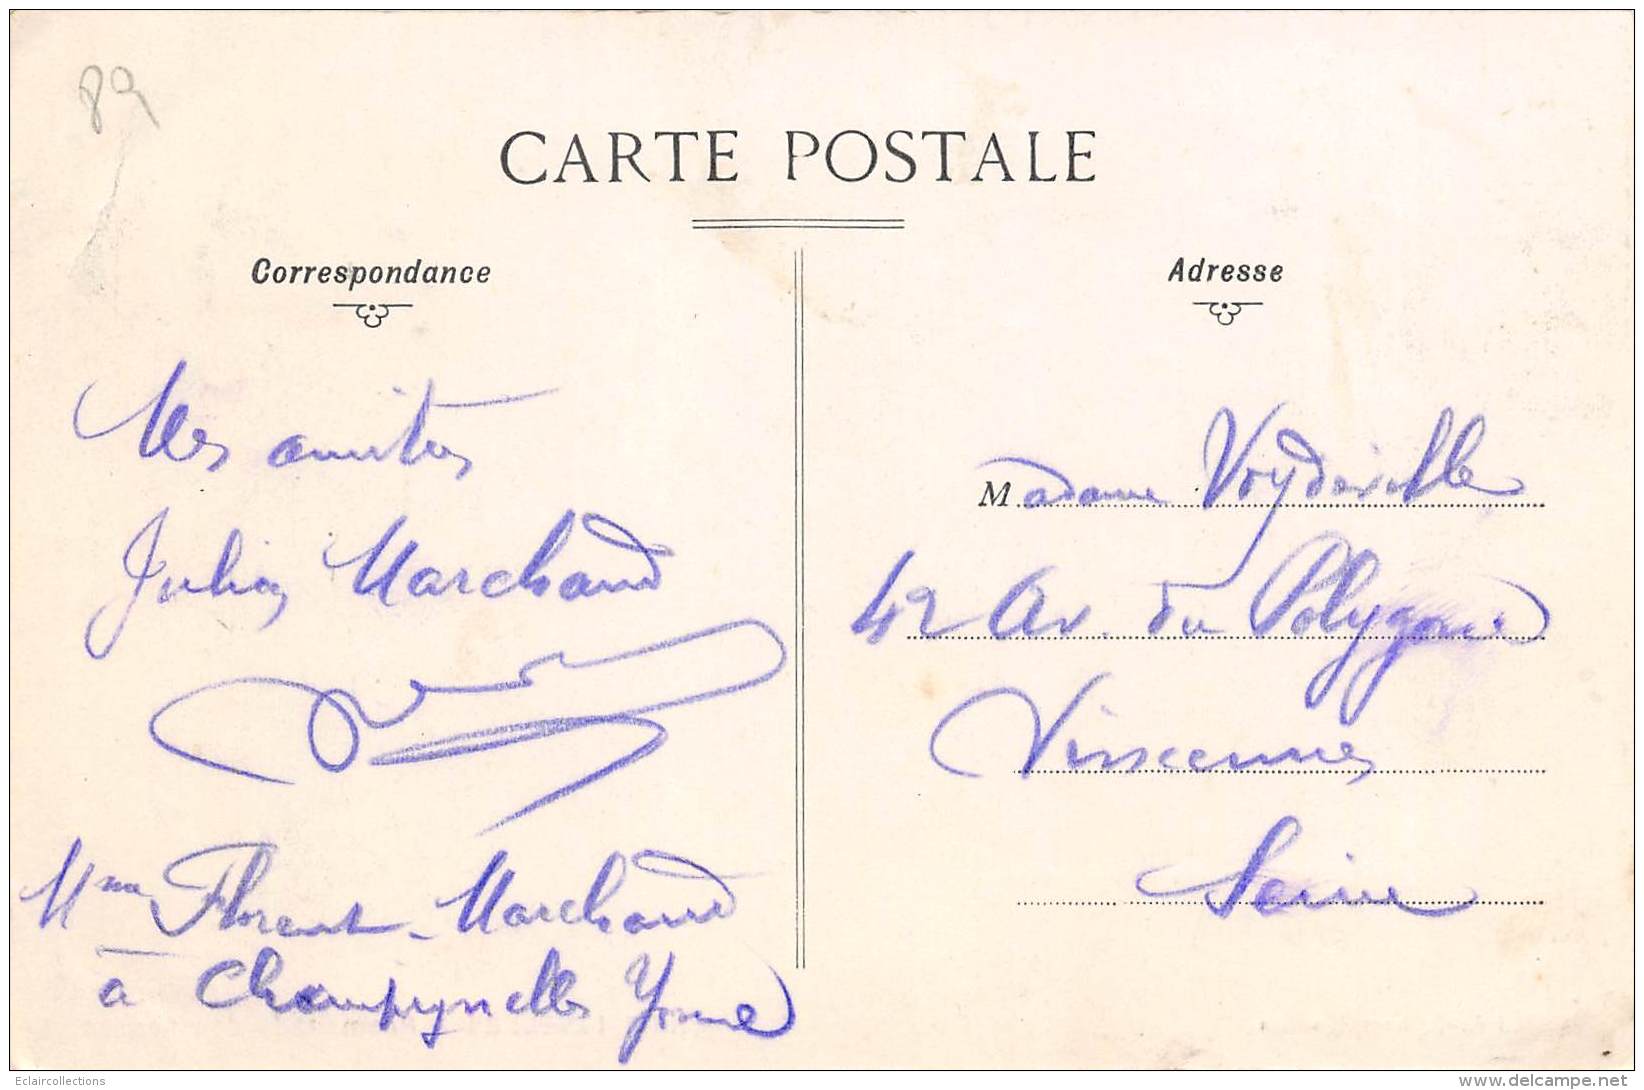 89
CARTE POSTALE
Correspondance
Adresse
Mes amitiés
Julia Marchand
Mme Florent-Marchand
à Champignelles Yonne
Madame
42 Av. du Polygone
Vinscennes
Seine
Eclaircollections
www.delcampe.net